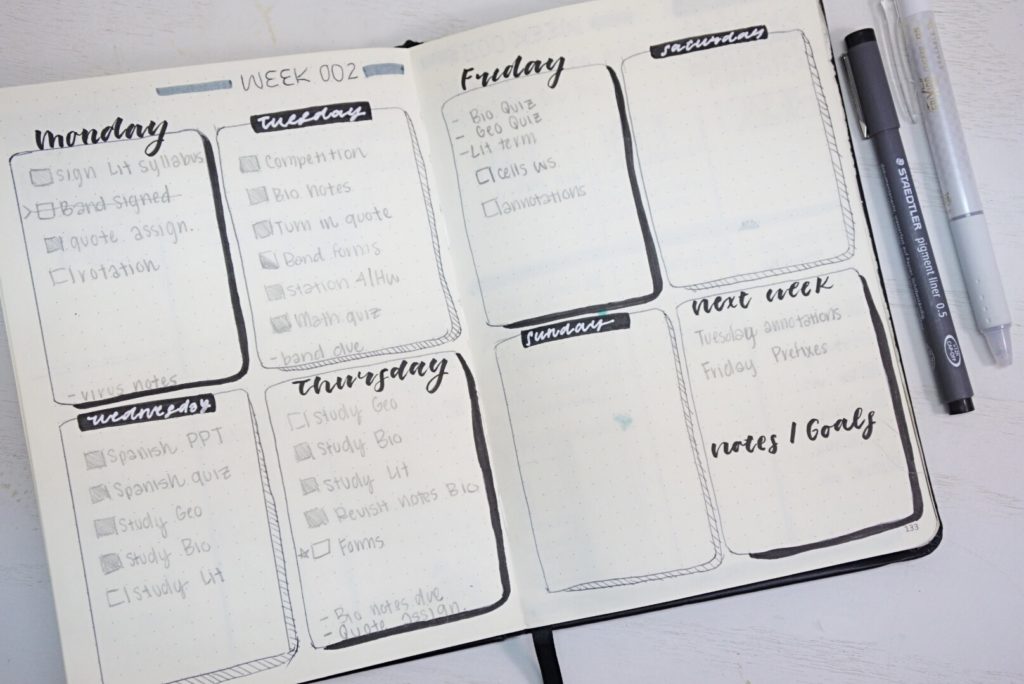 WEEK 002
monday
sign Lit syllabus
Band signed
quote assign.
rotation
- virus notes
tuesday
Competition
Bio notes
Turn in quote
Band forms
station 4/Hw
Math quiz
- band due
wednesday
Spanish PPT
Spanish quiz
Study Geo
Study Bio
Study Lit
Thursday
Study Geo
Study Bio
Study Lit
Revisit notes Bio
Forms
- Bio notes due
- Quote assign.
Friday
- Bio Quiz
- Geo Quiz
- Lit term
cells ws
annotations
saturday
sunday
next week
Tuesday annotations
Friday Prefixes
notes / Goals
133
STAEDTLER
pigment liner 0.5